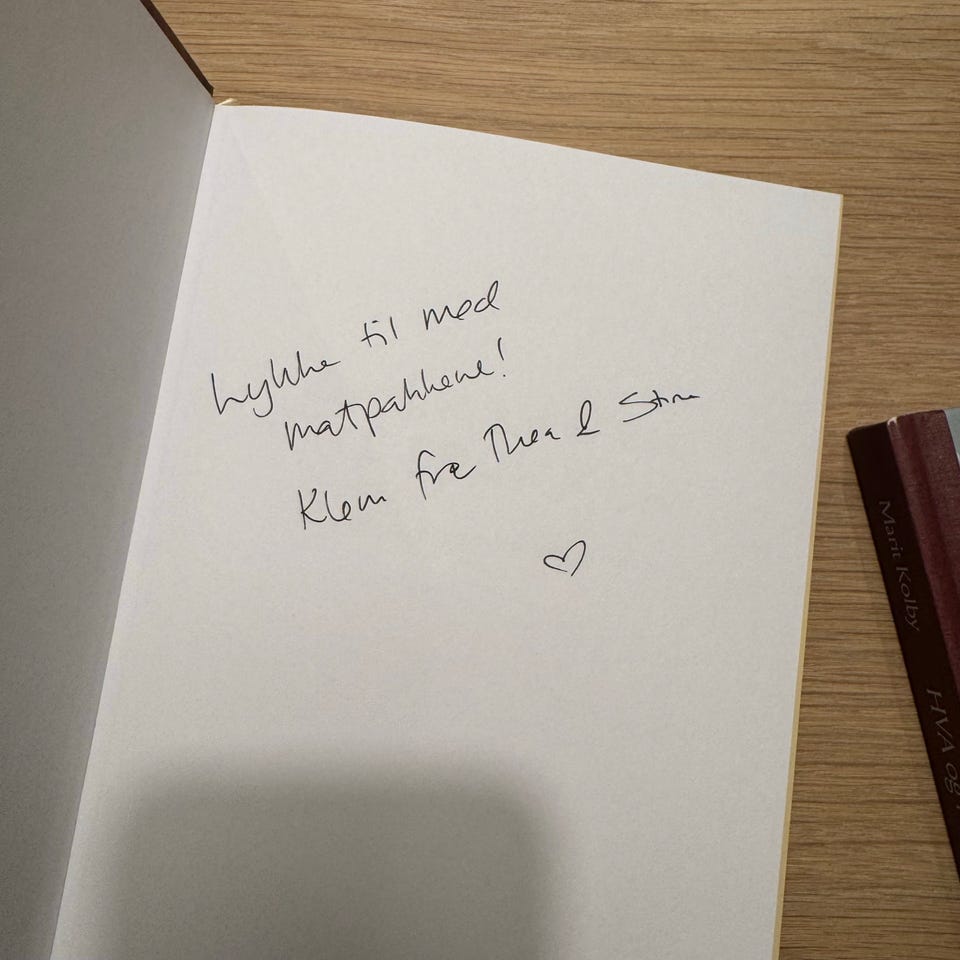 Lykke til med
matpakkene!
Klem fra Thea & Stine
♡
Marit Kolby
HVA og